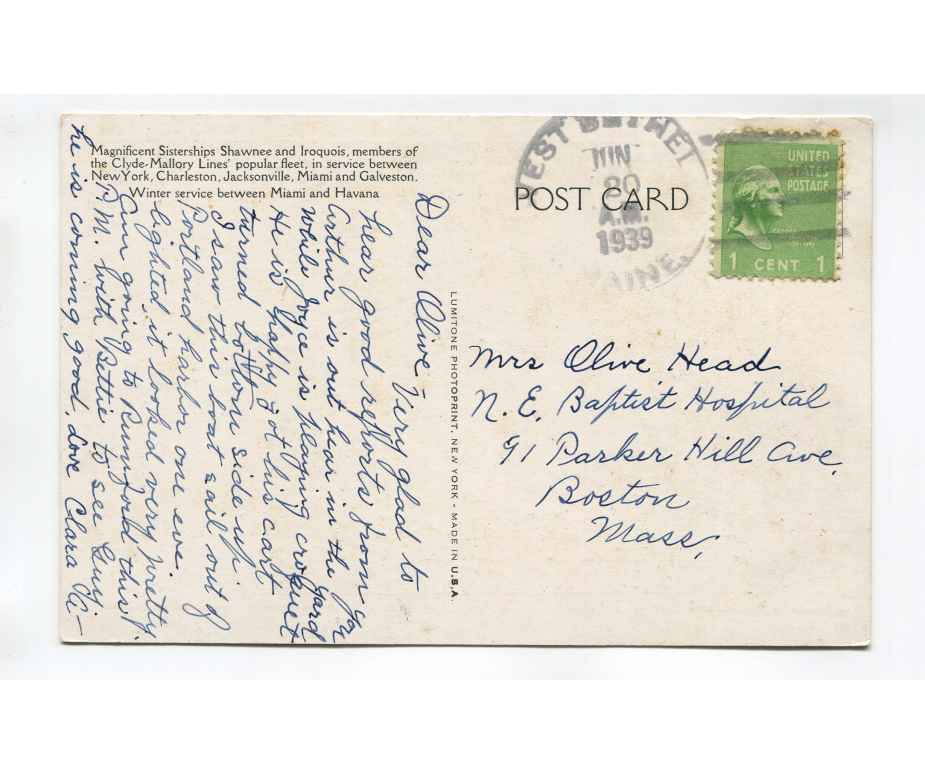 Magnificent Sisterships Shawnee and Iroquois, members of
the Clyde-Mallory Lines' popular fleet, in service between
New York, Charleston, Jacksonville, Miami and Galveston.
Winter service between Miami and Havana
Dear Olive Very glad to
hear good reports from you
Arthur is out hear in the yard
while Joyce is playing croquet
He is happy got his cart
turned bottom side up.
I saw this boat sail out of
Portland harbor one eve.
lighted it looked very pretty.
Am going to Rumford this
P.M. with Bettie to see Guy.
he is coming good. Love Clara
LUMITONE PHOTOPRINT, NEW YORK - MADE IN U.S.A.
POST CARD
EST BETHEL
JUN
20
A.M.
1939
MAINE.
UNITED
STATES
POSTAGE
1 CENT 1
Mrs Olive Head
N. E. Baptist Hospital
91 Parker Hill Ave.
Boston
Mass,